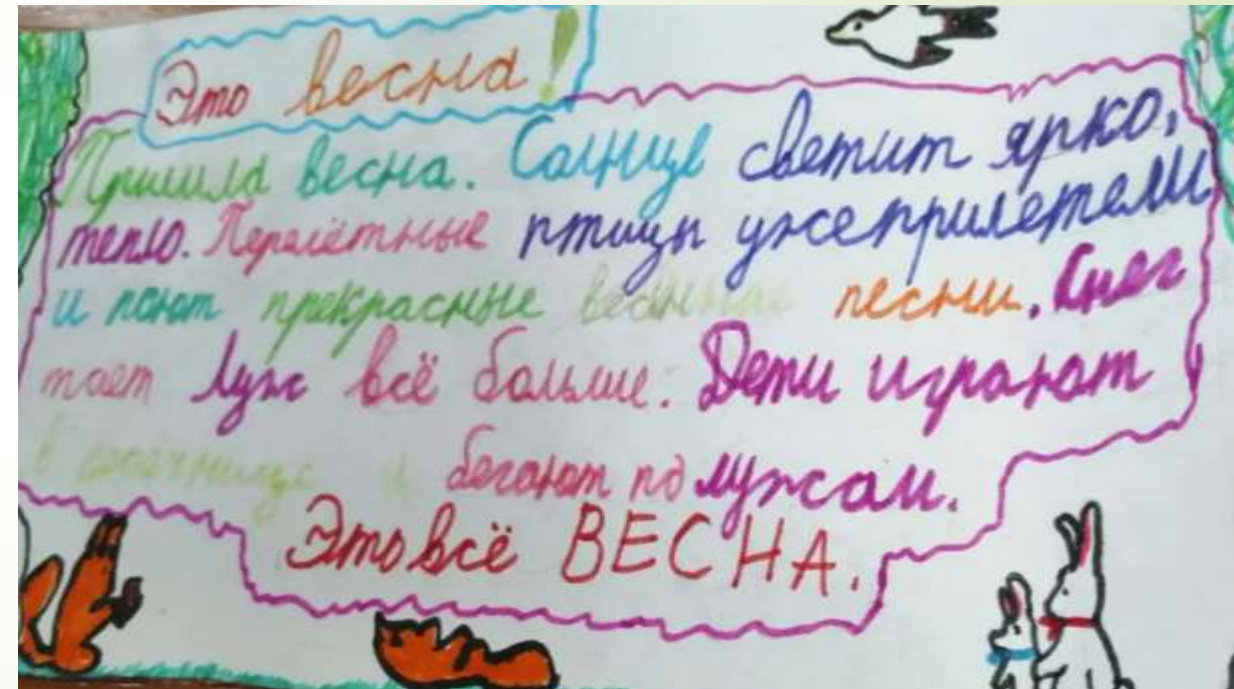 Это весна!
Пришла весна. Солнце светит ярко,
тепло. Перелётные птицы уже прилетели
и поют прекрасные весенние песни. Снег
тает Луж всё больше. Дети играют
в и бегают по лужам.
Это всё ВЕСНА.